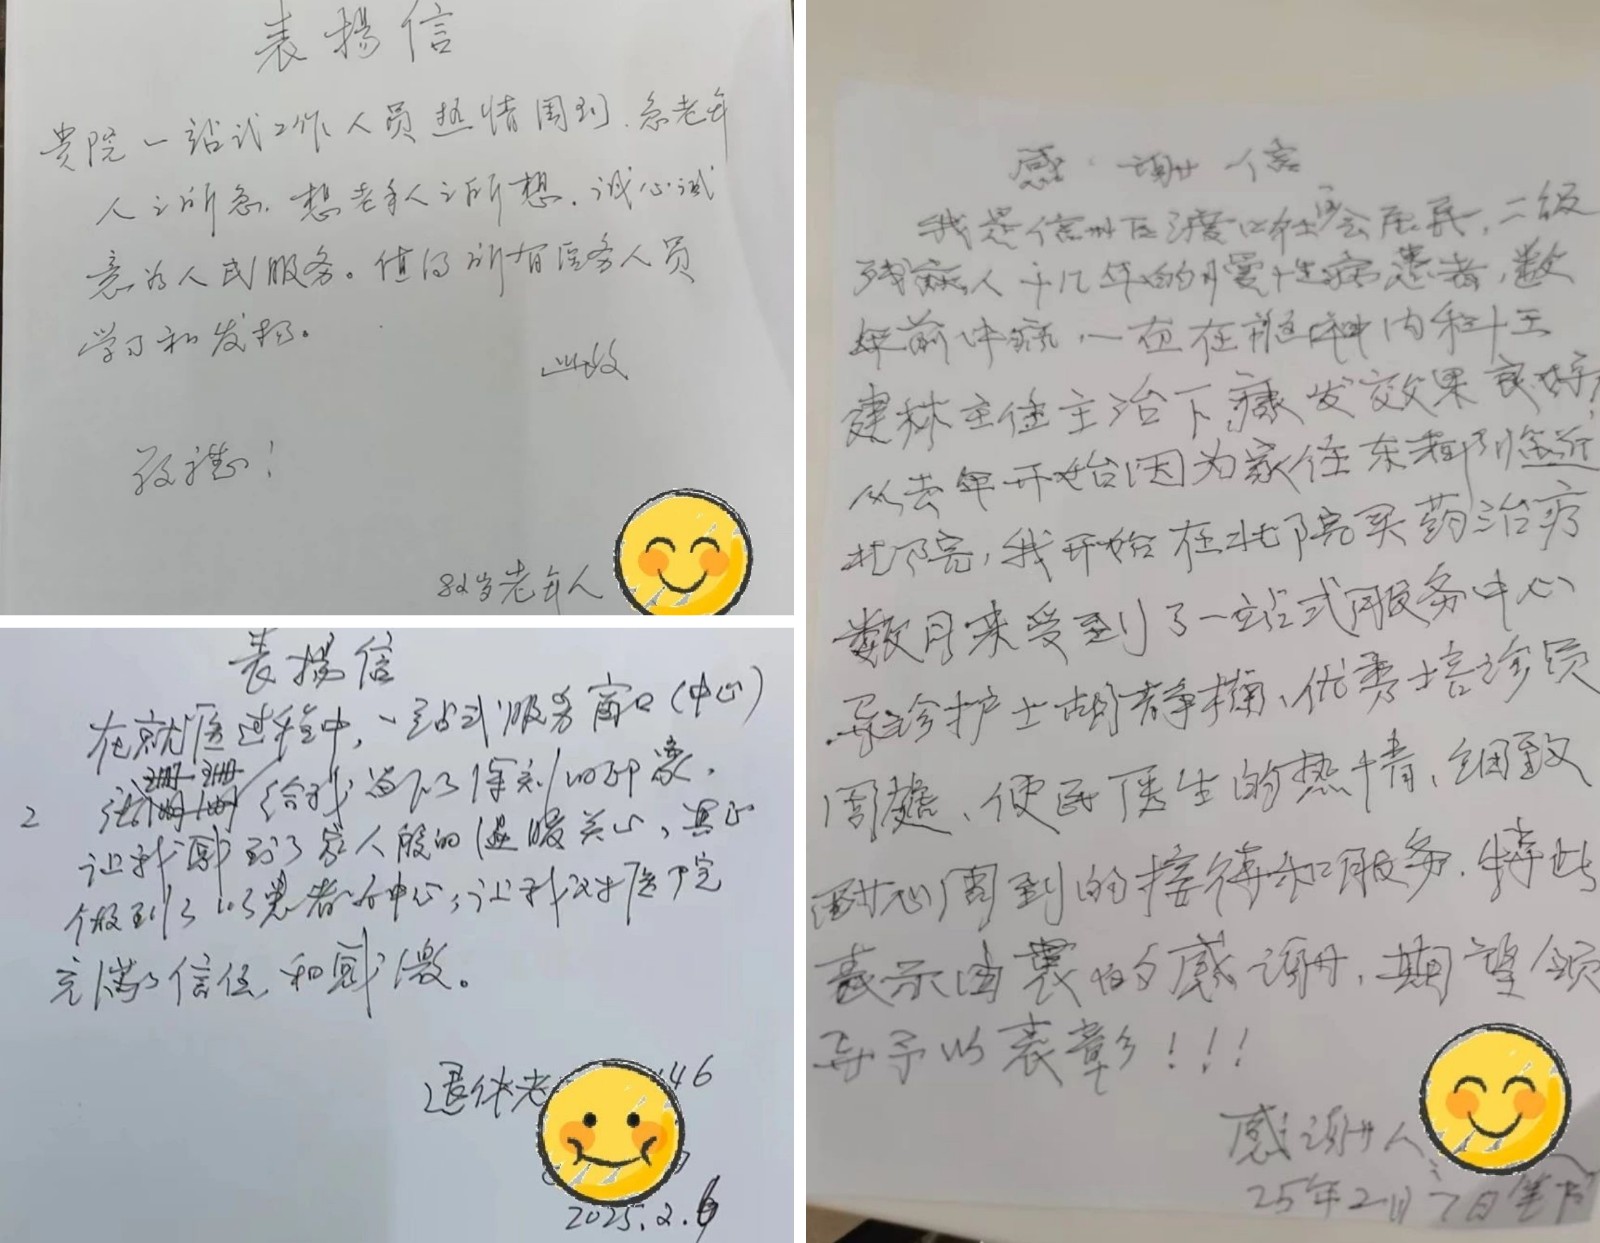 表揚信
贵院一站式工作人员热情周到.急老年
人之所急.想老年人之所想.诚心诚
意为人民服务。值得所有医务人员
学习和发扬。
此致
敬礼!
82岁老年人
表揚信
在就医过程中,一站式服务窗口(中心)
珊珊
2 给我留下了深刻的印象,
让我感到了家人般的温暖关心,真正
做到了以患者为中心,让我对医院
充满了信任和感激。
退休老 46
2025.2.6
感谢信
我是信州区渡口社区会居民,二级
残疾人十几年的慢性病患者,数
年前中病,一直在 神内科十三
建林主任主治下 发效果良好!
从去年开始因为家住东 临近
北院,我开始在北院买药治疗
数月来受到了一站式服务中心
导诊护士胡静 、优秀培诊员
周 、便民医生的热情、细致
耐心周到的接待和服务.特此
表示由衷的感谢,期望领
导予以表彰!!!
感谢人
25年2月7日笔